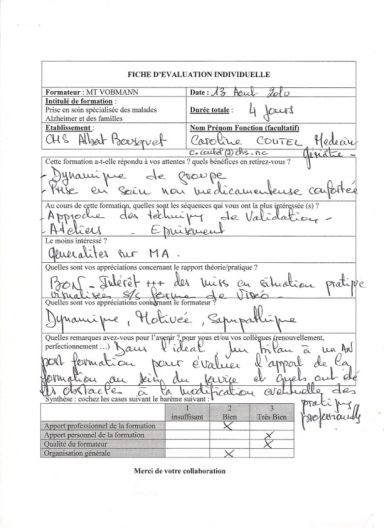 FICHE D'EVALUATION INDIVIDUELLE
Formateur : MT VOBMANN
Date : 13 Aout 2010
Intitulé de formation :
Prise en soin spécialisée des malades
Alzheimer et des familles
Durée totale : 4 Jours
Etablissement :
CHS Albert Bousquet
Nom Prénom Fonction (facultatif)
Caroline COUTEL Medecin
gériatre -
Cette formation a-t-elle répondu à vos attentes ? quels bénéfices en retirez-vous ?
- Dynamique de groupe
- Prise en soin non medicamenteuse confortée
Au cours de cette formation, quelles sont les séquences qui vous ont la plus intéressée (s) ?
- Approche des techniques de Validation -
- Ateliers - Epuisement
Le moins intéressé ?
generalites sur MA.
Quelles sont vos appréciations concernant le rapport théorie/pratique ?
BON - Intérêt +++ des mises en situation pratique
visualisées s/s forme de Video -
Quelles sont vos appréciations concernant le formateur ?
Dynamique, Motivée, Sympathique
Quelles remarques avez-vous pour l'avenir ? pour vous et/ou vos collègues (renouvellement,
perfectionnement ...) Dans l'ideal un bilan à un AN
post formation pour évaluer l'apport de la
formation au sein du service et quels ont été
les obstacles à la modification eventuelle des
pratiques
professionnelles
Synthèse : cochez les cases suivant le barème suivant :
1 2 3
insuffisant Bien Très Bien
Apport professionnel de la formation X
Apport personnel de la formation X
Qualité du formateur X
Organisation générale X
Merci de votre collaboration